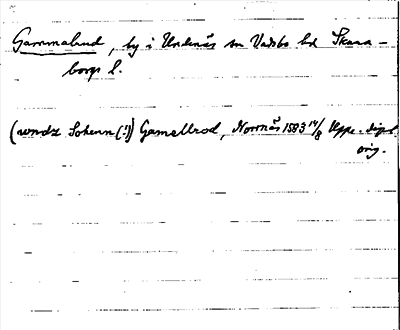 Gammalrud, by i Undenäs sn Vadsbo hd Skara-
borgs l.
(wndz Sokenn (!)) Gamellrod, Norrnäs 1583 14/8 Upps. dipl
orig.